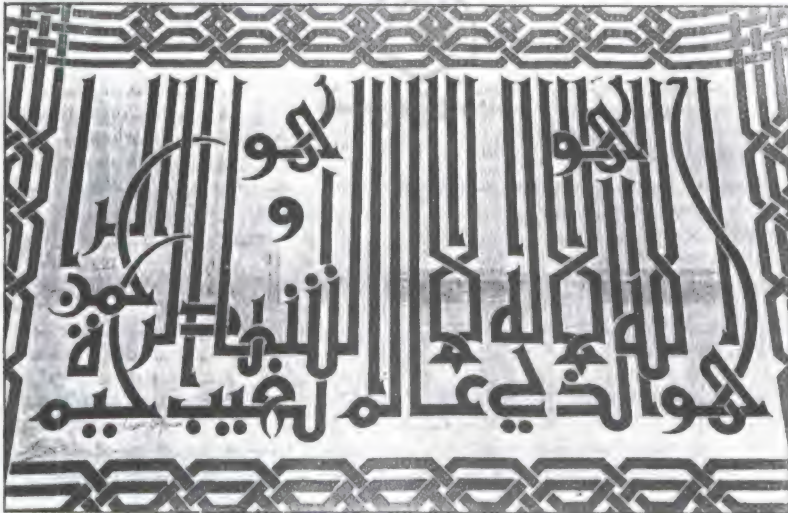 هو الله الذي لا إله إلا هو عالم الغيب والشهادة هو الرحمن الرحيم